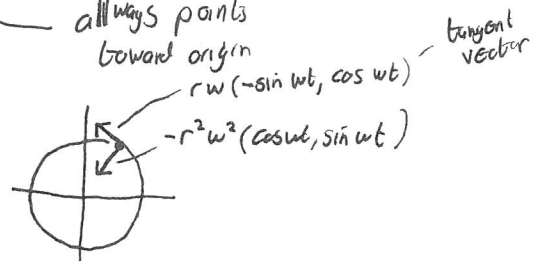 allways points
toward origin
tangent
vector
rw(-sin wt, cos wt)
-r²w²(cos wt, sin wt)